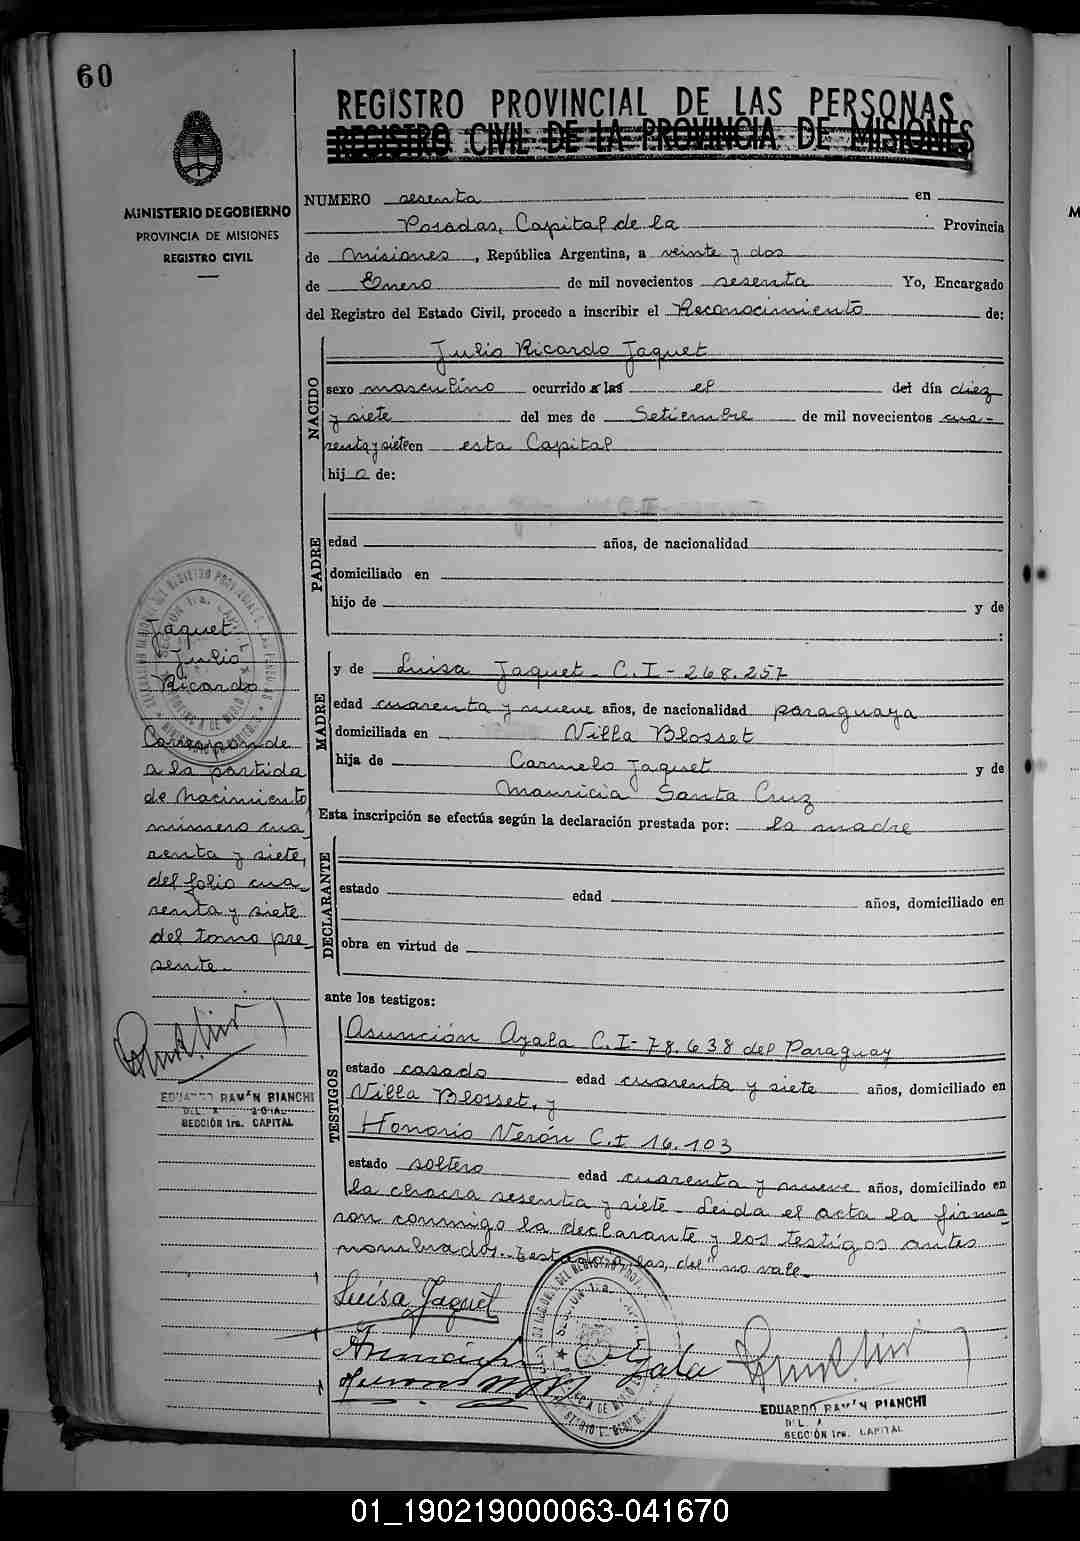 60
REGISTRO PROVINCIAL DE LAS PERSONAS
REGISTRO CIVIL DE LA PROVINCIA DE MISIONES
MINISTERIO DE GOBIERNO
PROVINCIA DE MISIONES
REGISTRO CIVIL
NUMERO sesenta en
Posadas, Capital de la Provincia
de Misiones, República Argentina, a veinte y dos
de Enero de mil novecientos sesenta Yo, Encargado
del Registro del Estado Civil, procedo a inscribir el Reconocimiento de:
NACIDO
Julio Ricardo Jaquet
sexo masculino ocurrido a las el del día diez
y siete del mes de Setiembre de mil novecientos cua-
renta y siete en esta Capital
hijo de:
PADRE
edad años, de nacionalidad
domiciliado en
hijo de y de
:
MADRE
y de Luisa Jaquet - C.I - 268.257
edad cuarenta y nueve años, de nacionalidad paraguaya
domiciliada en Villa Blosset
hija de Carmelo Jaquet y de
Mauricia Santa Cruz
Esta inscripción se efectúa según la declaración prestada por: la madre
DECLARANTE
estado edad años, domiciliado en
obra en virtud de
ante los testigos:
TESTIGOS
Asunción Ayala C.I- 78.638 del Paraguay
estado casado edad cuarenta y siete años, domiciliado en
Villa Blosset, y
Honorio Verón C.I 16.103
estado soltero edad cuarenta y nueve años, domiciliado en
la chacra sesenta y siete - Leida el acta la firma-
ron conmigo la declarante y los testigos antes
nombrados. Testado: a las, del "no vale.
Luisa Jaquet
Asunción Ayala
EDUARDO RAMÓN BIANCHI
SECCIÓN 1ra. CAPITAL
Jaquet
Julio
Ricardo
Corresponde
a la partida
de nacimiento
número cua-
renta y siete,
del folio cua-
renta y siete
del tomo pre-
sente.
EDUARDO RAMÓN BIANCHI
SECCIÓN 1ra. CAPITAL
01_190219000063-041670